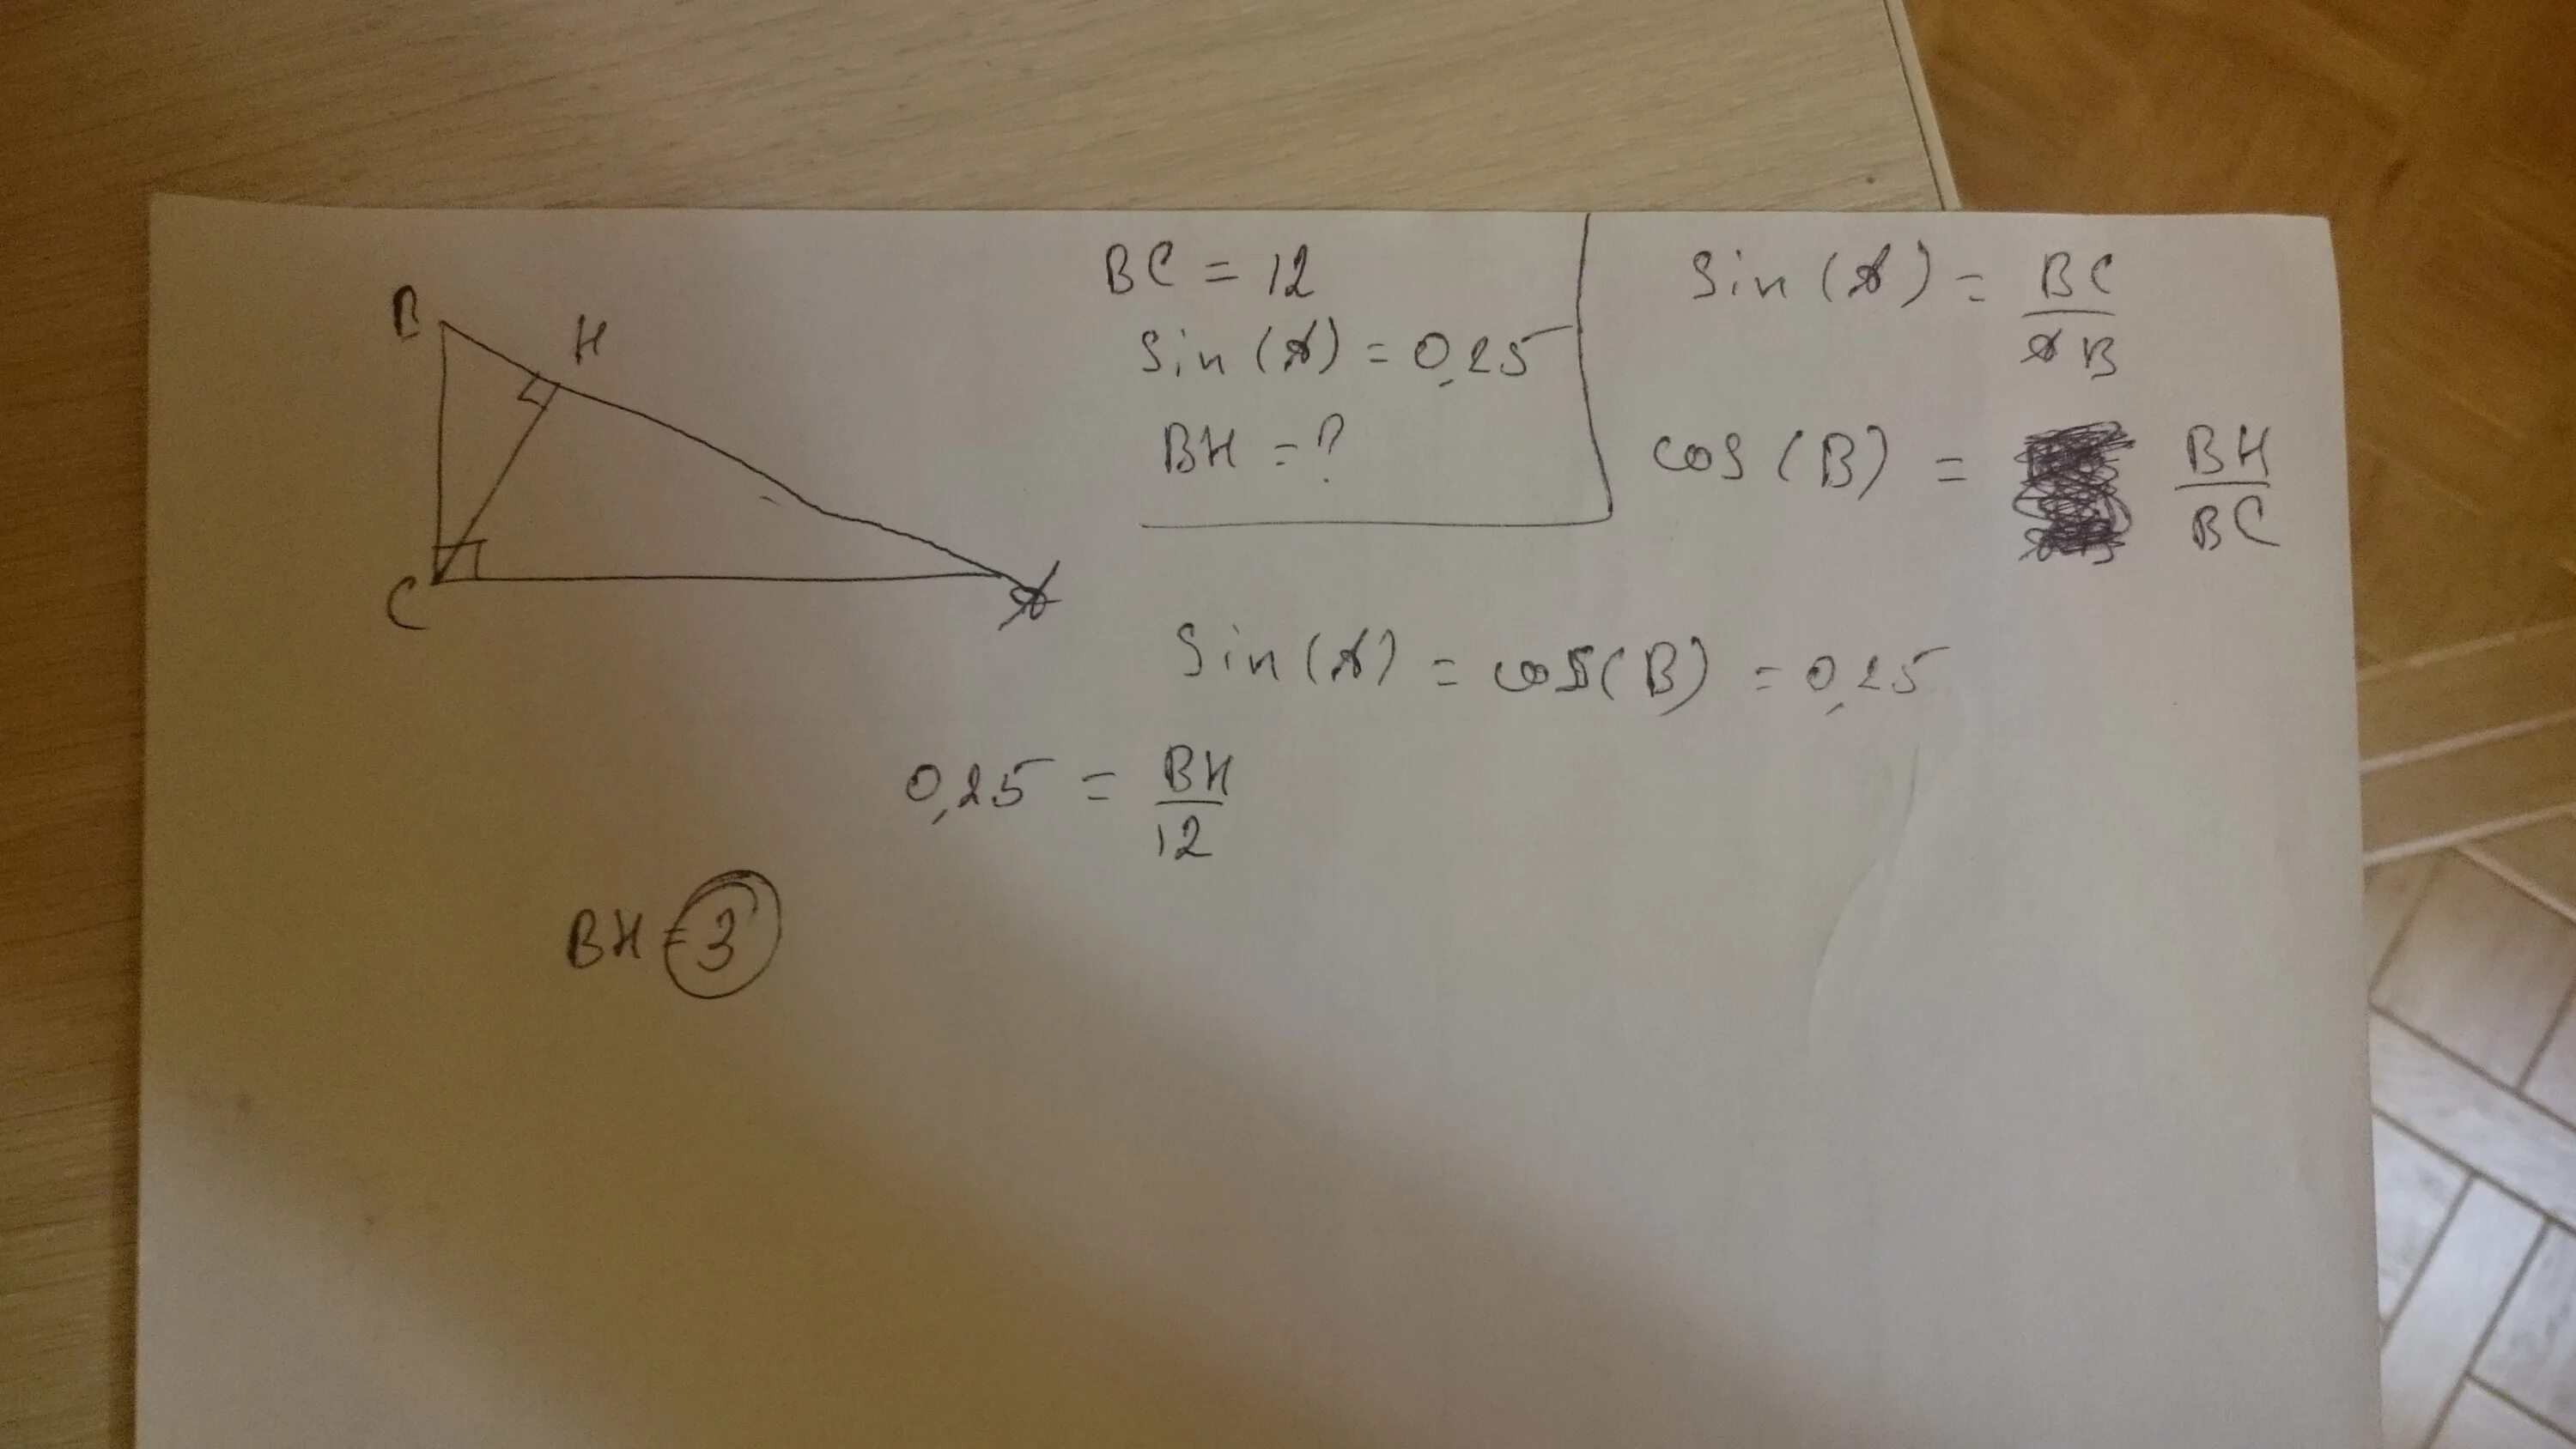 B
H
C
A
BC = 12
Sin (A) = 0,25
BH = ?
Sin (A) = BC / AB
cos (B) = BH / BC
Sin (A) = cos (B) = 0,25
0,25 = BH / 12
BH = 3